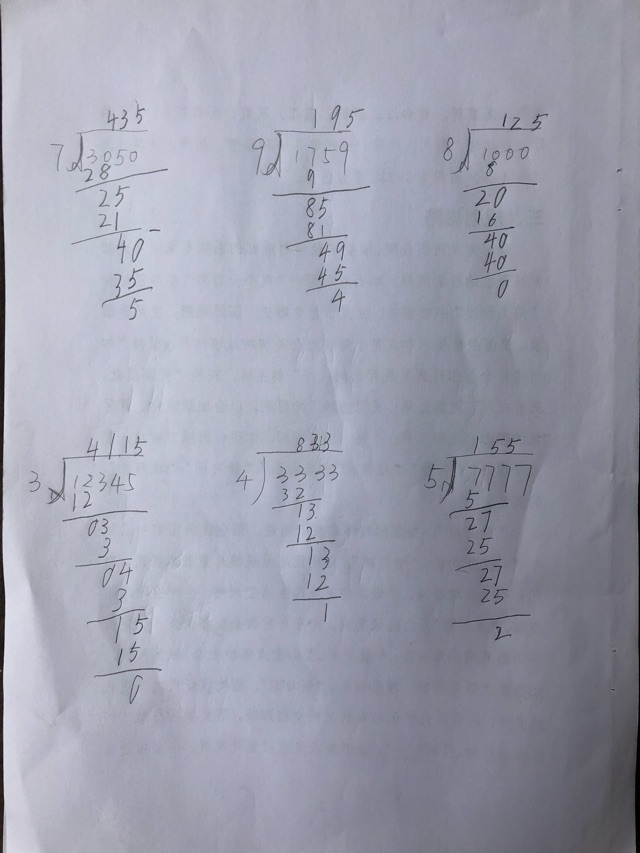 435
7 3050
28
25
21
40
35
5
195
9 1759
9
85
81
49
45
4
125
8 1000
8
20
16
40
40
0
4115
3 12345
12
03
3
04
3
15
15
0
833
4 3333
32
13
12
13
12
1
155
5 7777
5
27
25
27
25
2